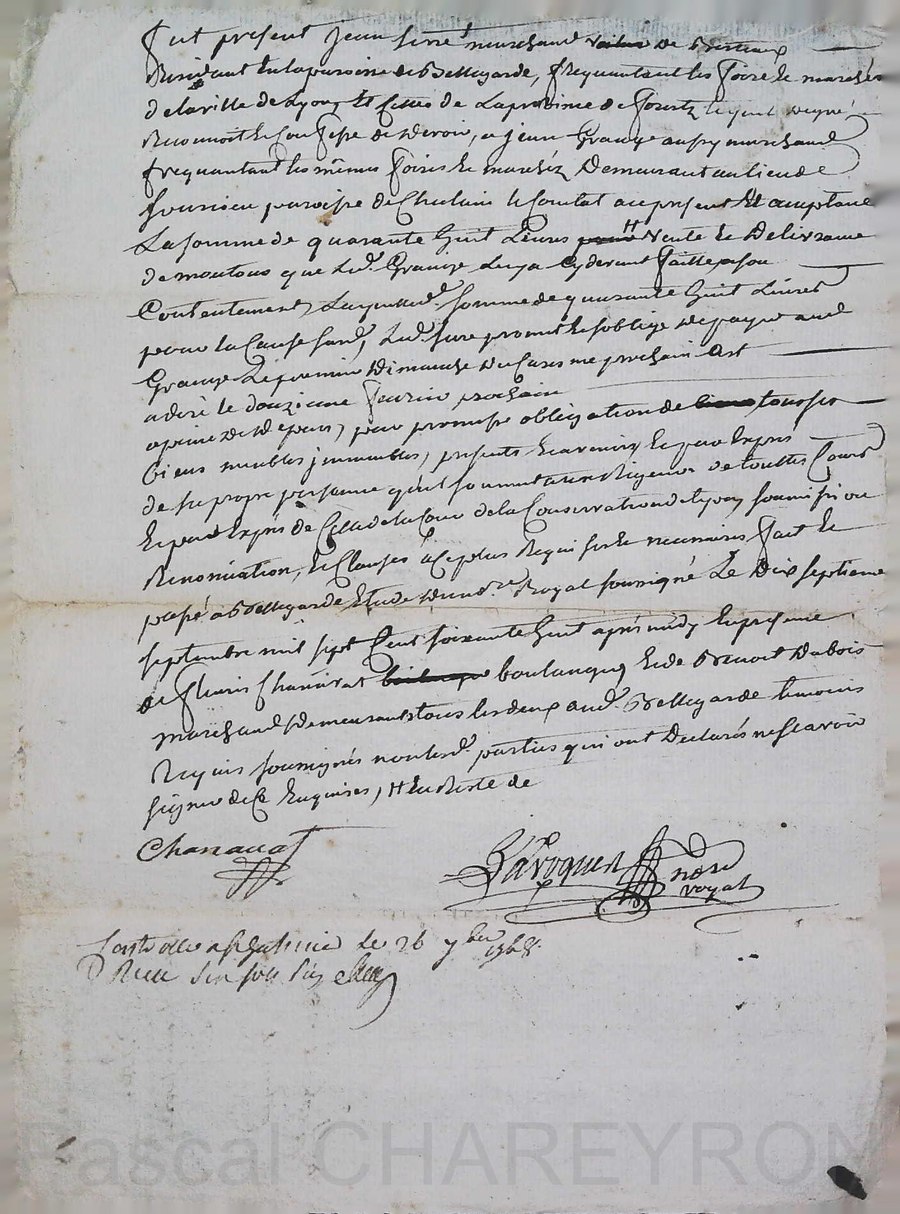 fut présent Jean Siré marchand de Bestiaux
Résidant en la paroisse de Bellegarde, frequantant les foire et marchés
de la ville de Lyon, et celles de La province de forestz lequel de gré
Reconnoit et Confesse de devoir, a jean Grange aussy marchand
frequantant les mêmes foires et marchéz Demeurant au lieu de
Souzieu paroisse de Chalain le Comtal au present et acceptant
La somme de quarante huit Livres H Vente et Delivrance
de moutons que Led. Grange luy a Cy devant faitte a son
Contentement, Laquelle d. Somme de quarante huit Livres
pour la Cause sand, Led. Siré promet et soblige de payer aud
Grange Le premier Dimanche de Caresme prochain Est
a dire le douzieme fevrier prochain
a peine de Depens, pour promesse obligation de tous ses
biens meubles immeubles, présents et avenirs et par Exprés
de sa propre personne qu'il soumet aux Rigeurs de touttes Cours
et par Exprés de Celle de la Cour de la Conservation de Lyon soumission
Renonciation, et Clauses a Ce plus Requises et necessaires fait et
passé a Bellegarde Etude du no.re Royal soussigné Le Dix septieme
septembre mil sept Cent soixante huit aprés midy En presence
de fleuris Chanavat boulanger, et de Benoit Dubois
marchand Demeurants tous les deux aud. Bellegarde temoins
Requis soussignés non lesd. parties qui ont Declarés ne scavoir
signer de Ce Enquises, H En Reste de
Chanavat
Laroquen nore
royal
Controllé a le 26 7bre
1768.
Reçu six sols six